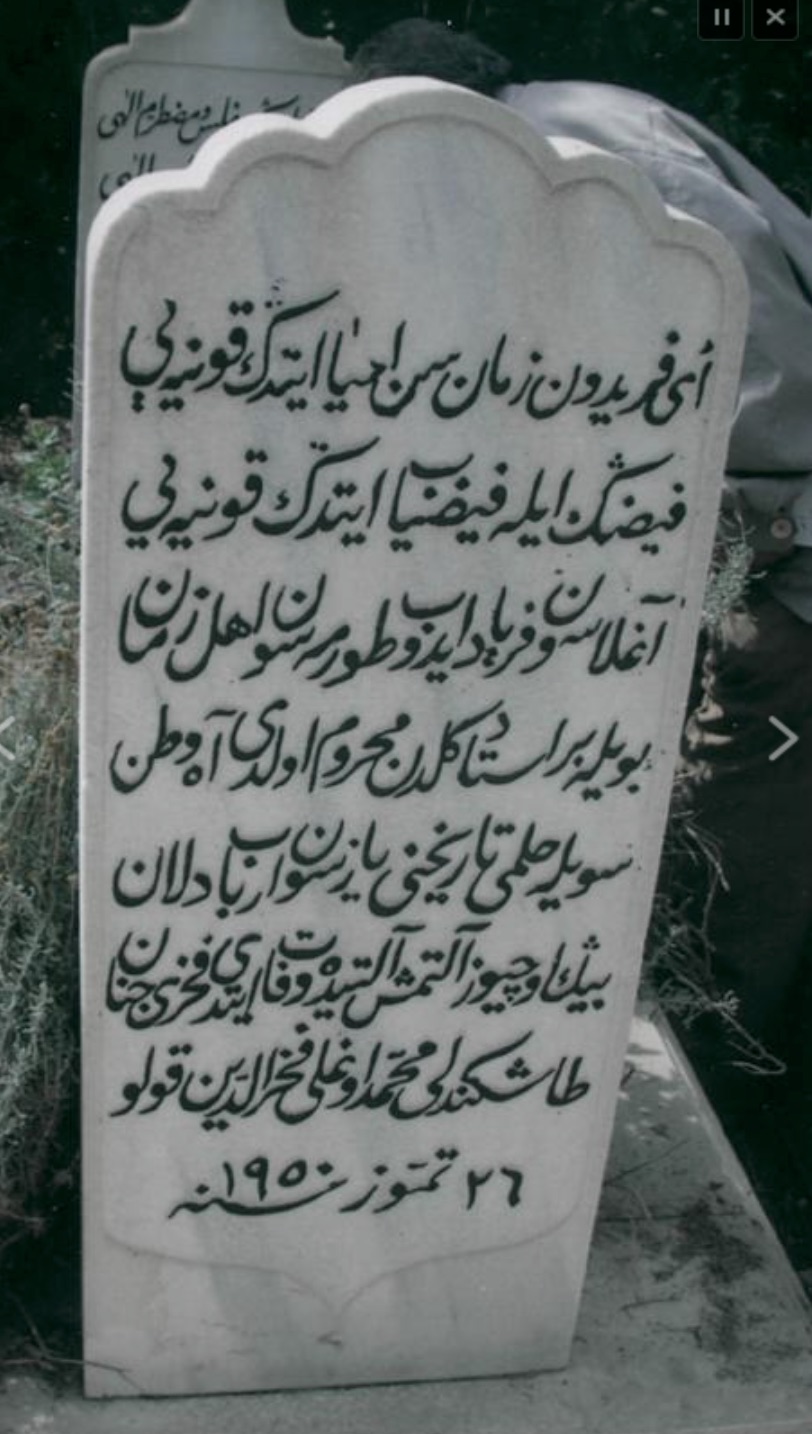 مفلس ومضطرم الهی
الهی
أی فریدون زمان سن احیا ایتدڭ قونیه یی
فیضڭ ایله فیضیاب ایتدڭ قونیه یی
آغلاسون وفریاد ایدوب طورمه سون اهل زمان
بویله بر استاد گلدن محروم اولدی آه وطن
سویله حلمی تاریخنی یازسون ارباب دلان
بیڭ اوچیوز آلتمش آلتیده وفات ایتدی فخری جنان
طاشکندلی محمد اوغلی فخرالدین قولو
٢٦ تموز سنه ١٩٥٠